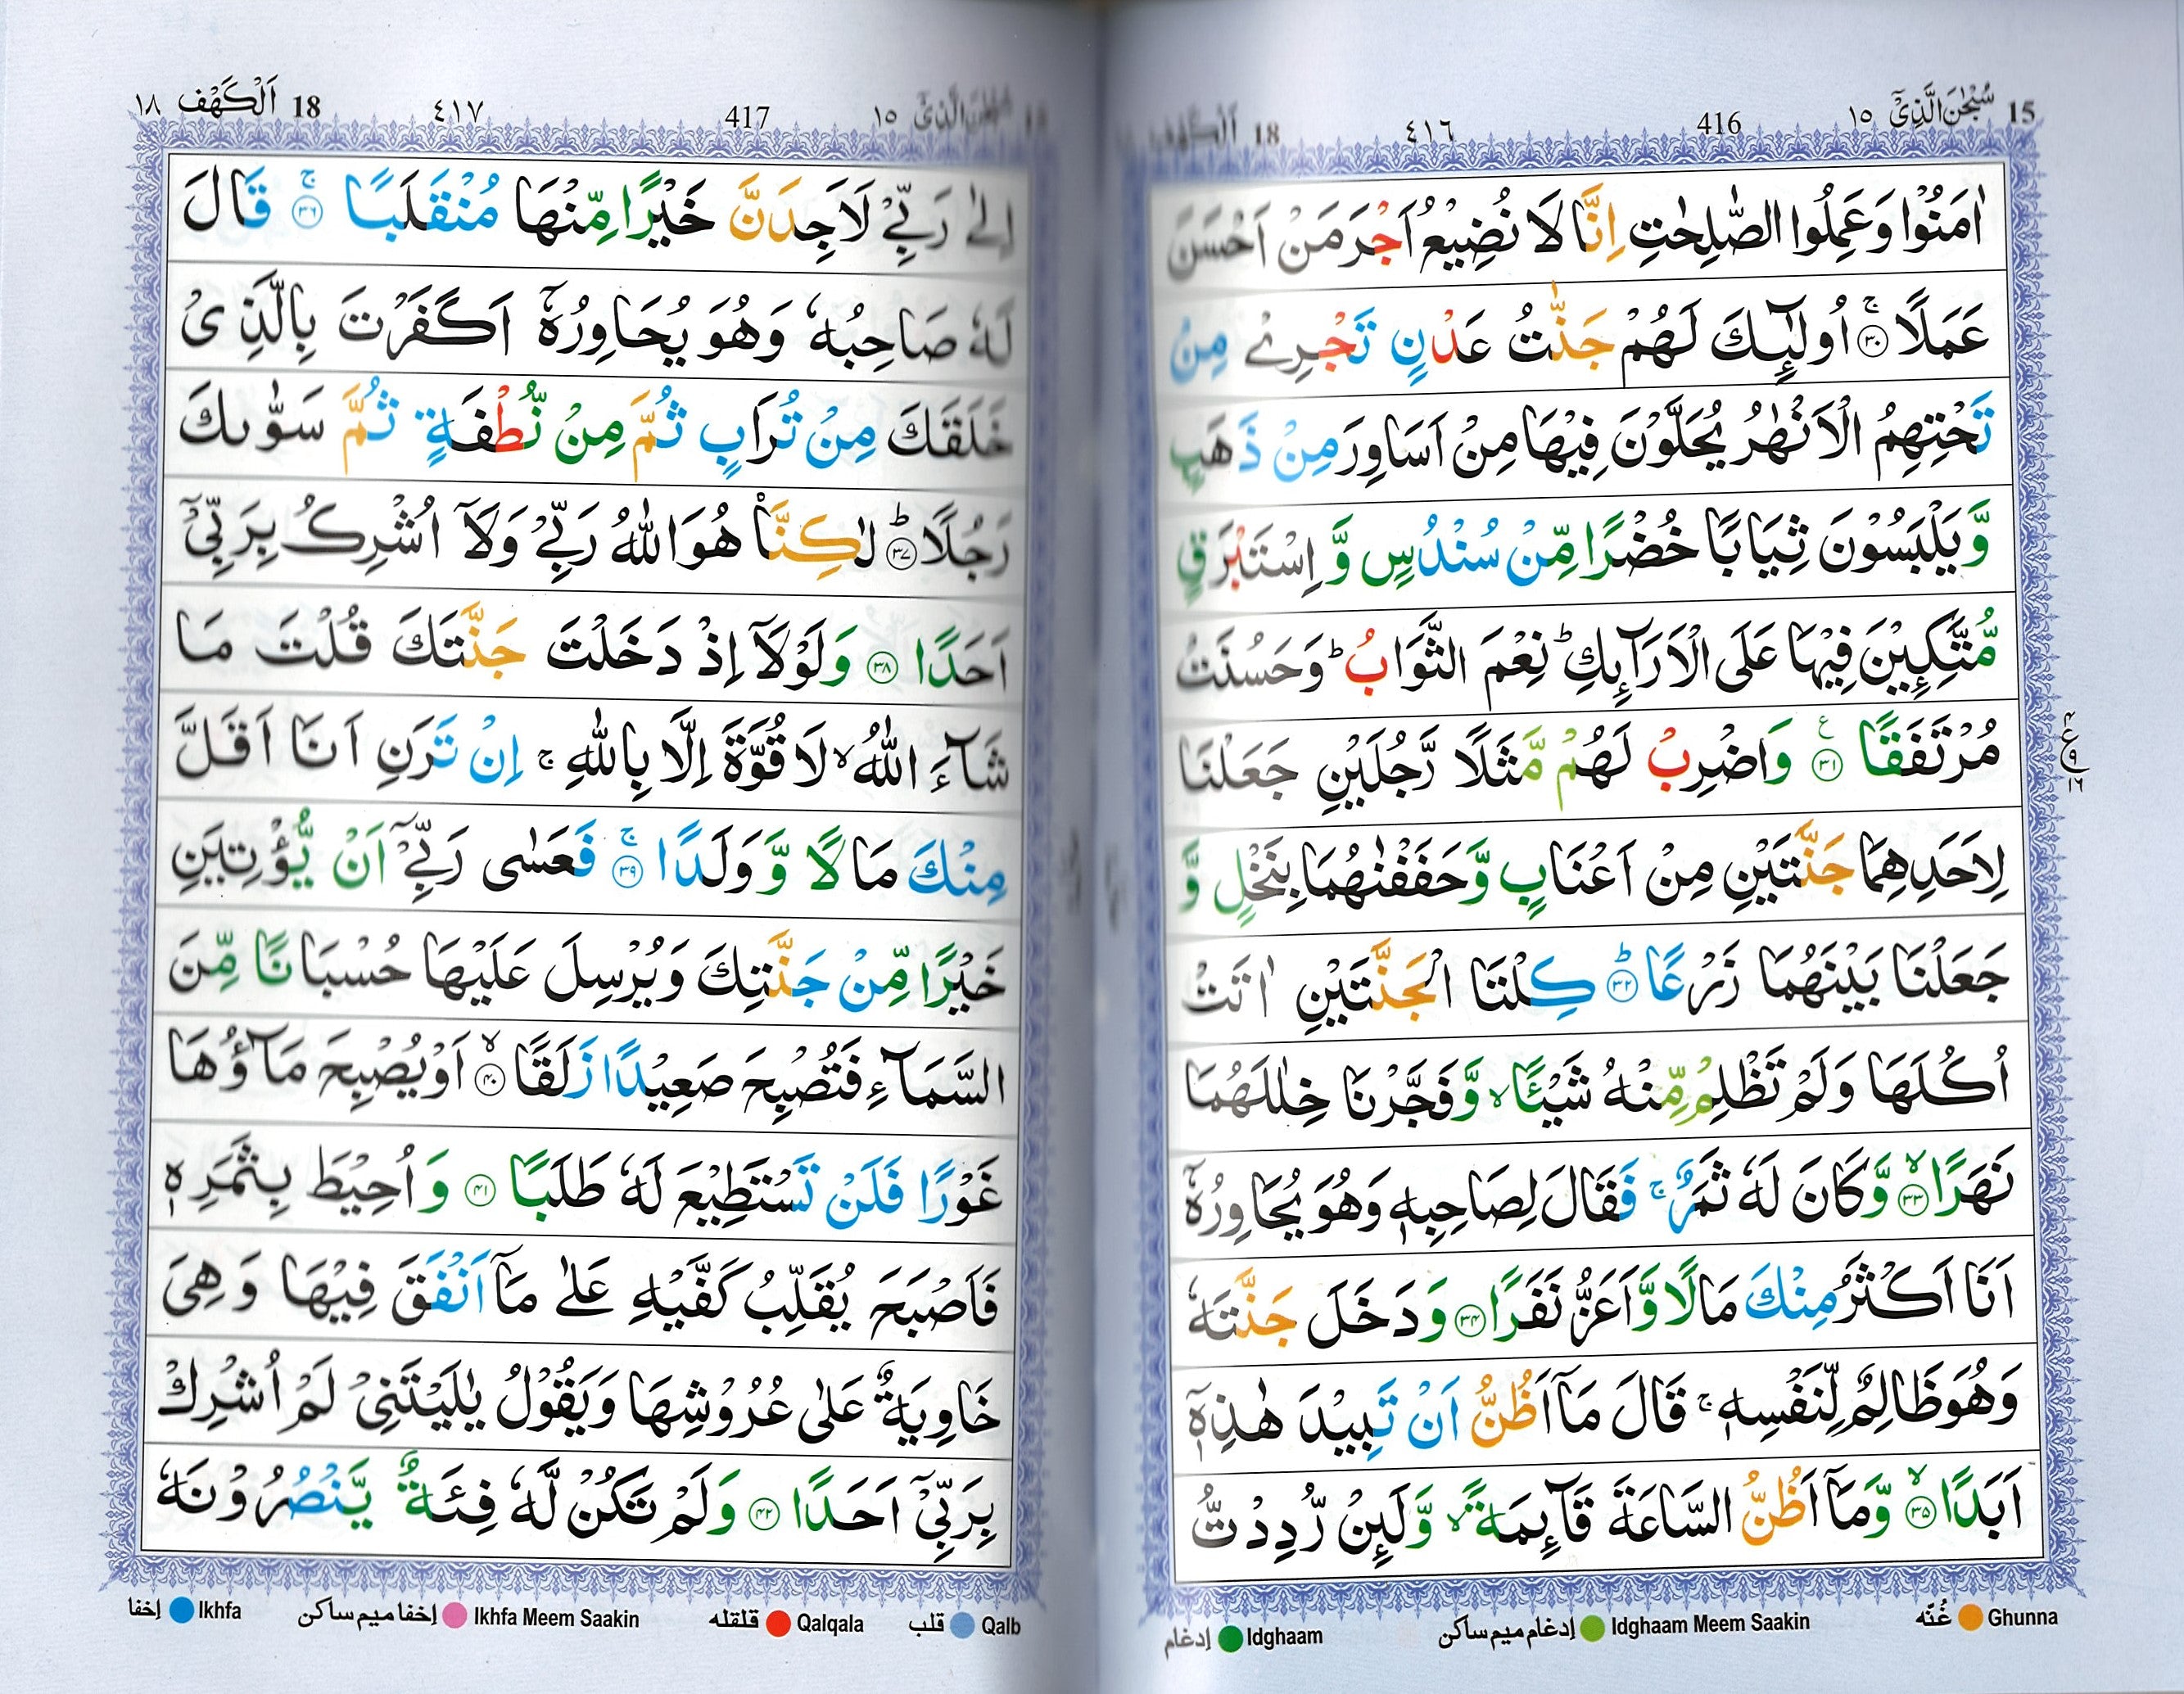 15 سُبْحٰنَ الَّذِيْٓ ١٥ 416 ٤١٦ 18 اَلْكَهْف
اٰمَنُوْا وَعَمِلُوا الصّٰلِحٰتِ اِنَّا لَا نُضِيْعُ اَجْرَ مَنْ اَحْسَنَ
عَمَلًا ۚ۝٣٠ اُولٰٓئِكَ لَهُمْ جَنّٰتُ عَدْنٍ تَجْرِيْ مِنْ
تَحْتِهِمُ الْاَنْهٰرُ يُحَلَّوْنَ فِيْهَا مِنْ اَسَاوِرَ مِنْ ذَهَبٍ
وَّيَلْبَسُوْنَ ثِيَابًا خُضْرًا مِّنْ سُنْدُسٍ وَّاِسْتَبْرَقٍ
مُّتَّكِـِٕيْنَ فِيْهَا عَلَى الْاَرَآئِكِ ؕ نِعْمَ الثَّوَابُ ؕ وَحَسُنَتْ
مُرْتَفَقًا ۝٣١ وَاضْرِبْ لَهُمْ مَّثَلًا رَّجُلَيْنِ جَعَلْنَا
لِاَحَدِهِمَا جَنَّتَيْنِ مِنْ اَعْنَابٍ وَّحَفَفْنٰهُمَا بِنَخْلٍ وَّ
جَعَلْنَا بَيْنَهُمَا زَرْعًا ؕ۝٣٢ كِلْتَا الْجَنَّتَيْنِ اٰتَتْ
اُكُلَهَا وَلَمْ تَظْلِمْ مِّنْهُ شَيْـًٔا ۙ وَّفَجَّرْنَا خِلٰلَهُمَا
نَهَرًا ۙ۝٣٣ وَّكَانَ لَهٗ ثَمَرٌ ۚ فَقَالَ لِصَاحِبِهٖ وَهُوَ يُحَاوِرُهٗٓ
اَنَا اَكْثَرُ مِنْكَ مَالًا وَّاَعَزُّ نَفَرًا ۝٣٤ وَدَخَلَ جَنَّتَهٗ
وَهُوَ ظَالِمٌ لِّنَفْسِهٖ ۚ قَالَ مَآ اَظُنُّ اَنْ تَبِيْدَ هٰذِهٖٓ
اَبَدًا ۙ۝٣٥ وَّمَآ اَظُنُّ السَّاعَةَ قَآئِمَةً ۙ وَّلَئِنْ رُّدِدْتُّ
ع ٤ ٩ ١٦
إدغام Idghaam إدغام ميم ساكن Idghaam Meem Saakin غُنّه Ghunna
سُبْحٰنَ الَّذِيْٓ ١٥ 417 ٤١٧ 18 اَلْكَهْف ١٨
اِلٰى رَبِّيْ لَاَجِدَنَّ خَيْرًا مِّنْهَا مُنْقَلَبًا ۚ۝٣٦ قَالَ
لَهٗ صَاحِبُهٗ وَهُوَ يُحَاوِرُهٗٓ اَكَفَرْتَ بِالَّذِيْ
خَلَقَكَ مِنْ تُرَابٍ ثُمَّ مِنْ نُّطْفَةٍ ثُمَّ سَوّٰىكَ
رَجُلًا ؕ۝٣٧ لٰكِنَّا۠ هُوَ اللّٰهُ رَبِّيْ وَلَآ اُشْرِكُ بِرَبِّيْٓ
اَحَدًا ۝٣٨ وَلَوْلَآ اِذْ دَخَلْتَ جَنَّتَكَ قُلْتَ مَا
شَآءَ اللّٰهُ ۙ لَا قُوَّةَ اِلَّا بِاللّٰهِ ۚ اِنْ تَرَنِ اَنَا اَقَلَّ
مِنْكَ مَالًا وَّوَلَدًا ۚ۝٣٩ فَعَسٰى رَبِّيْٓ اَنْ يُّؤْتِيَنِ
خَيْرًا مِّنْ جَنَّتِكَ وَيُرْسِلَ عَلَيْهَا حُسْبَانًا مِّنَ
السَّمَآءِ فَتُصْبِحَ صَعِيْدًا زَلَقًا ۙ۝٤٠ اَوْ يُصْبِحَ مَآؤُهَا
غَوْرًا فَلَنْ تَسْتَطِيْعَ لَهٗ طَلَبًا ۝٤١ وَاُحِيْطَ بِثَمَرِهٖ
فَاَصْبَحَ يُقَلِّبُ كَفَّيْهِ عَلٰى مَآ اَنْفَقَ فِيْهَا وَهِيَ
خَاوِيَةٌ عَلٰى عُرُوْشِهَا وَيَقُوْلُ يٰلَيْتَنِيْ لَمْ اُشْرِكْ
بِرَبِّيْٓ اَحَدًا ۝٤٢ وَلَمْ تَكُنْ لَّهٗ فِئَةٌ يَّنْصُرُوْنَهٗ
إخفا Ikhfa إخفا ميم ساكن Ikhfa Meem Saakin قلقله Qalqala قلب Qalb